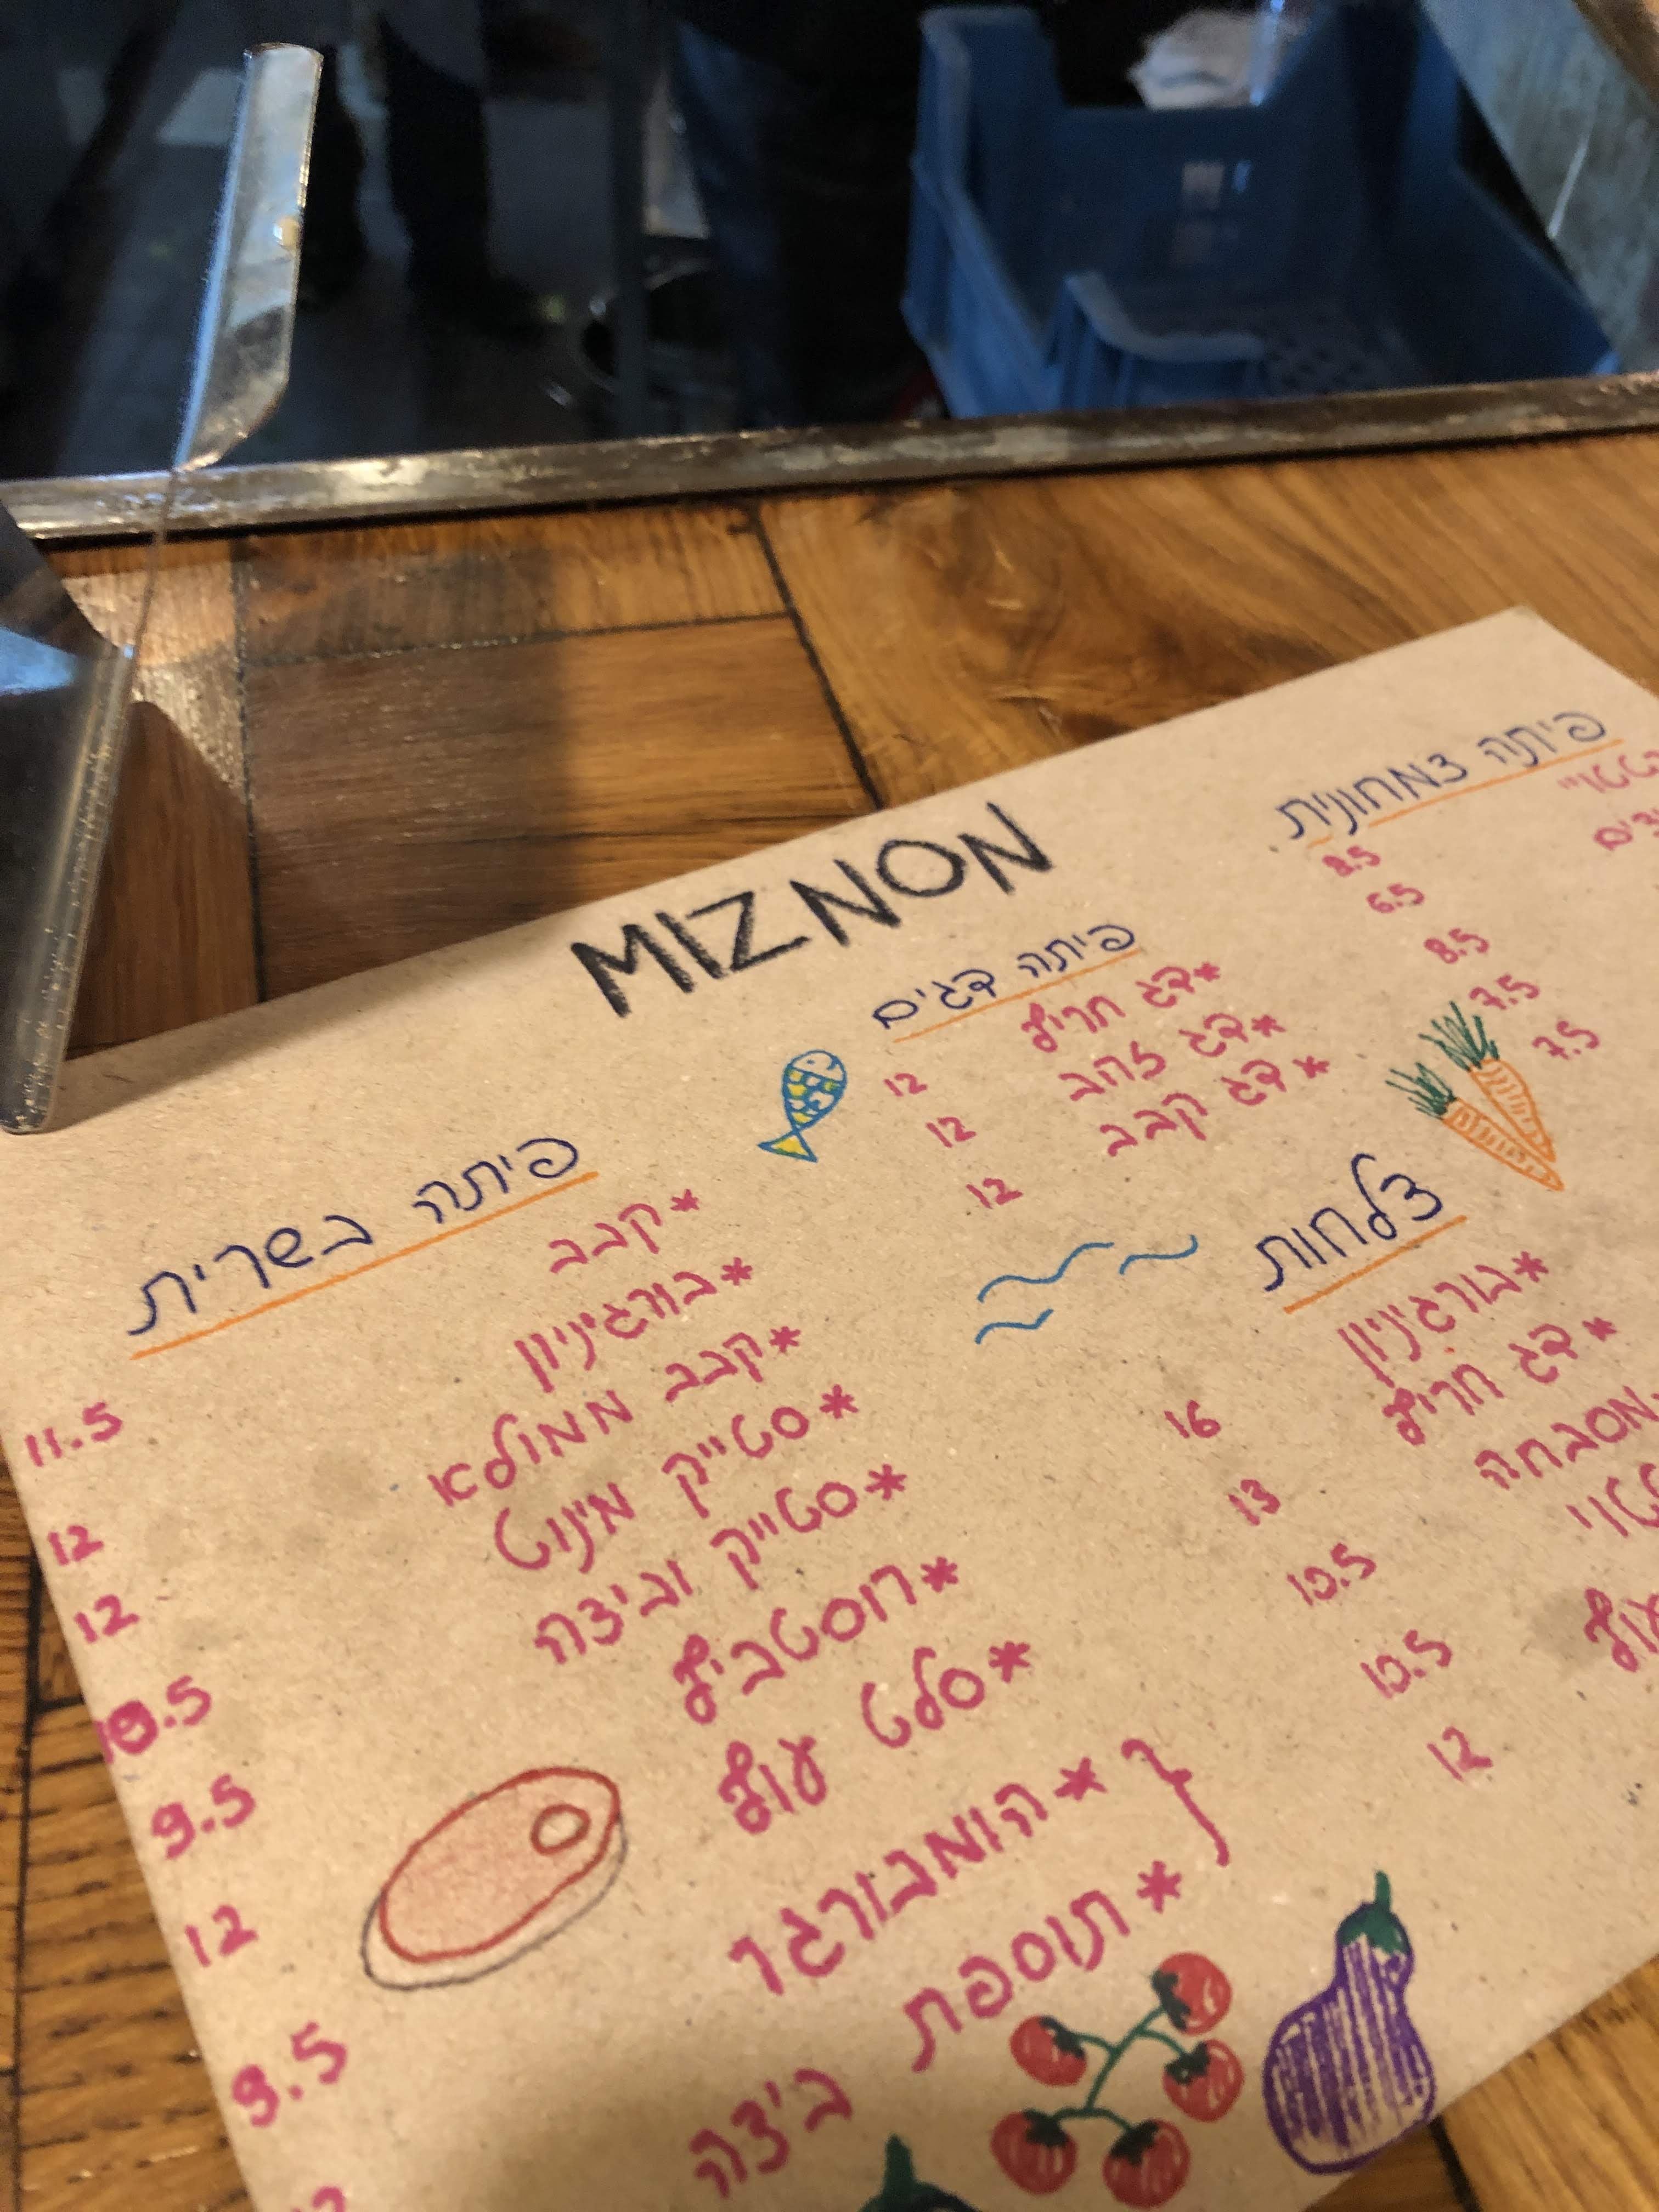 MIZNON
פיתה צמחונית
8.5
6.5
8.5
7.5
7.5
פיתה דגים
*דג חריף 12
*דג זהב 12
*דג קבב 12
פיתה בשרית
*קבב 11.5
*בורגיניון 12
*קבב ממולא 12
*סטייק מינוט 10.5
*סטייק וביצה 9.5
*רוסטביף 12
*סלט עוף 9.5
*המבורגר
*תוספת ביצה
צלחות
*בורגיניון 16
*דג חריף 13
מסבחה 10.5
10.5
עוף 12